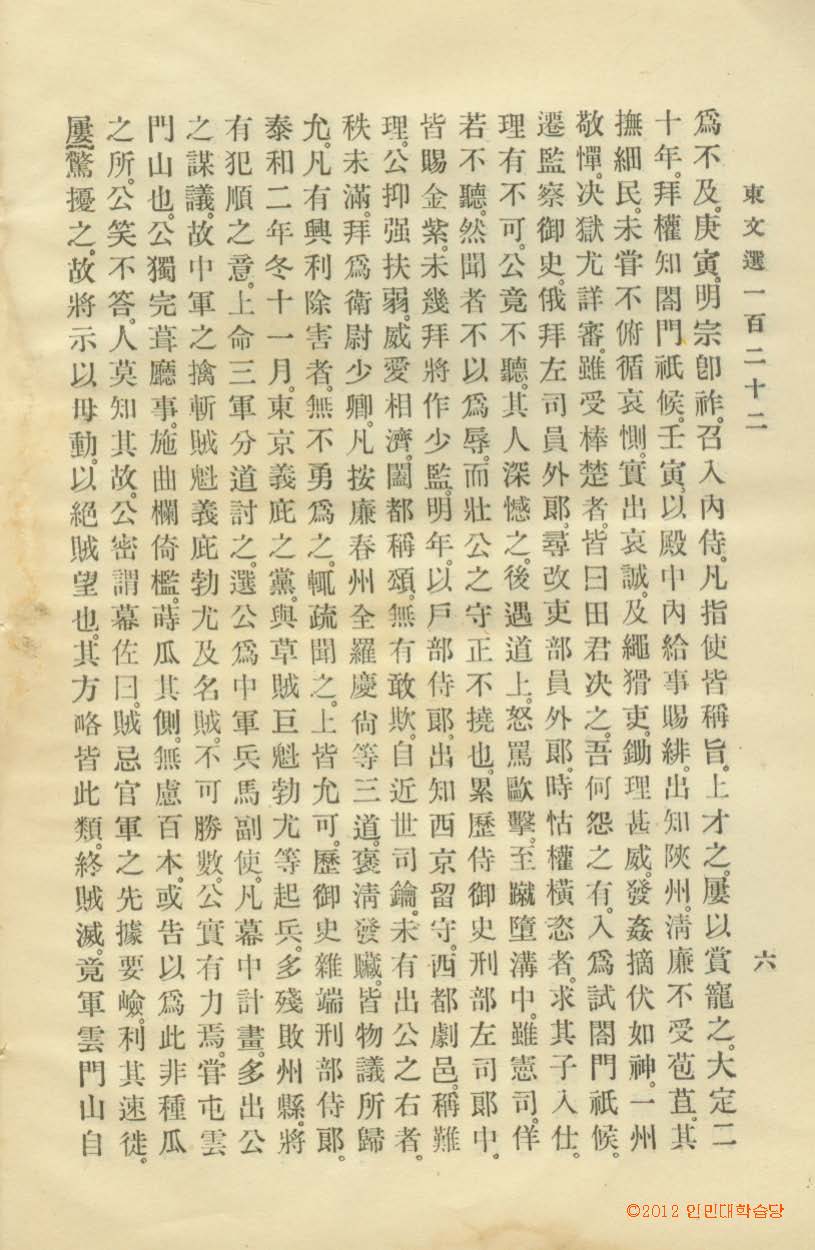 東文選一百二十二
六
爲不及。庚寅。明宗卽祚。召入內侍。凡指使皆稱旨。上才之。屢以賞寵之。大定二
十年。拜權知閤門祇候。壬寅。以殿中內給事賜緋。出知陜州。淸廉不受苞苴。其
撫細民。未甞不俯循哀惻。實出哀誠。及繩猾吏。鋤理甚威。發姦摘伏如神。一州
敬憚。决獄尤詳審。雖受棒楚者。皆曰田君决之。吾何怨之有。入爲試閤門祇候。
遷監察御史。俄拜左司員外郞。尋改吏部員外郞。時怙權橫恣者。求其子入仕。
理有不可。公竟不聽。其人深憾之。後遇道上。怒罵歐擊。至蹴墮溝中。雖憲司。佯
若不聽。然聞者不以爲辱。而壯公之守正不撓也。累歷侍御史刑部左司郞中。
皆賜金紫。未幾拜將作少監。明年。以戶部侍郞。出知西京留守。西都劇邑。稱難
理。公抑强扶弱。威愛相濟。闔都稱頌。無有敢欺。自近世司鑰。未有出公之右者。
秩未滿。拜爲衛尉少卿。凡按廉春州全羅慶尙等三道。褒淸發贓。皆物議所歸
允。凡有興利除害者。無不勇爲之。輒疏聞之。上皆允可。歷御史雜端刑部侍郞。
泰和二年冬十一月。東京義庇之黨。與草賊巨魁勃尤等起兵。多殘敗州縣。將
有犯順之意。上命三軍分道討之。選公爲中軍兵馬副使。凡幕中計畫。多出公
之謀議。故中軍之擒斬賊魁義庇勃尤及名賊。不可勝數。公實有力焉。甞屯雲
門山也。公獨完葺廳事。施曲欄倚檻。蒔瓜其側。無慮百本。或告以爲此非種瓜
之所。公笑不答。人莫知其故。公密謂幕佐曰。賊忌官軍之先據要嶮。利其速徙。
屢驚擾之。故將示以毋動。以絕賊望也。其方略皆此類。終賊滅。竟軍雲門山自
©2012 인민대학습당